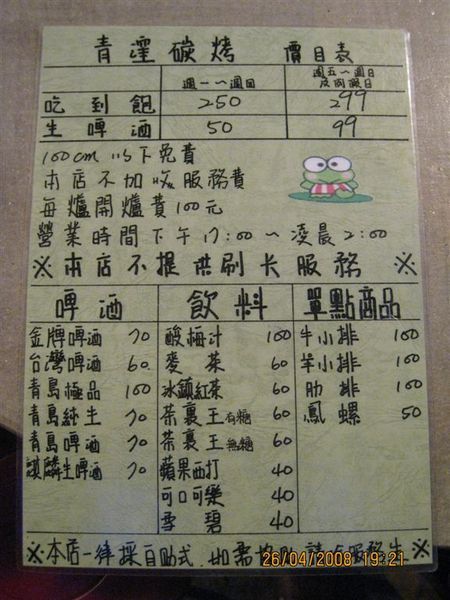 青窪碳烤 價目表
週一~週四 週五~週日及例假日
吃到飽 250 299
生啤酒 50 99
100cm以下免費
本店不加收服務費
每爐開爐費100元
營業時間下午17:00~凌晨2:00
※本店不提供刷卡服務※
啤酒 飲料 單點商品
金牌啤酒 70 酸梅汁 100 牛小排 100
台灣啤酒 60 麥茶 60 羊小排 100
青島極品 100 冰鎮紅茶 60 肋排 100
青島純生 70 茶裏王有糖 60 鳳螺 50
青島啤酒 70 茶裏王無糖 60
麒麟生啤酒 70 蘋果西打 40
可口可樂 40
雪碧 40
※本店一律採自助式,如需協助請 服務生※
26/04/2008 19:21